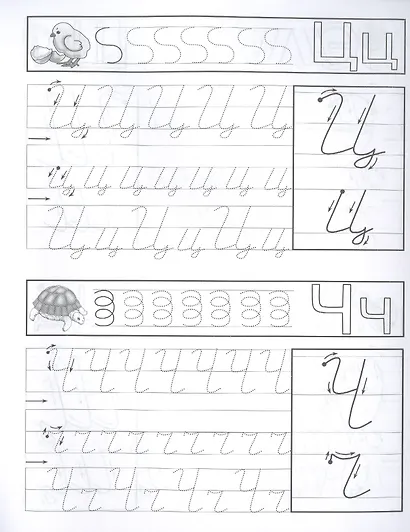 Ц ц
Ц Ц Ц Ц Ц Ц
Ц
ц ц ц ц ц ц ц
ц
Ц ц Ц ц Ц ц
Ч ч
Ч Ч Ч Ч Ч Ч Ч
Ч
ч ч ч ч ч ч ч ч ч
ч
Ч ч Ч ч Ч ч Ч ч